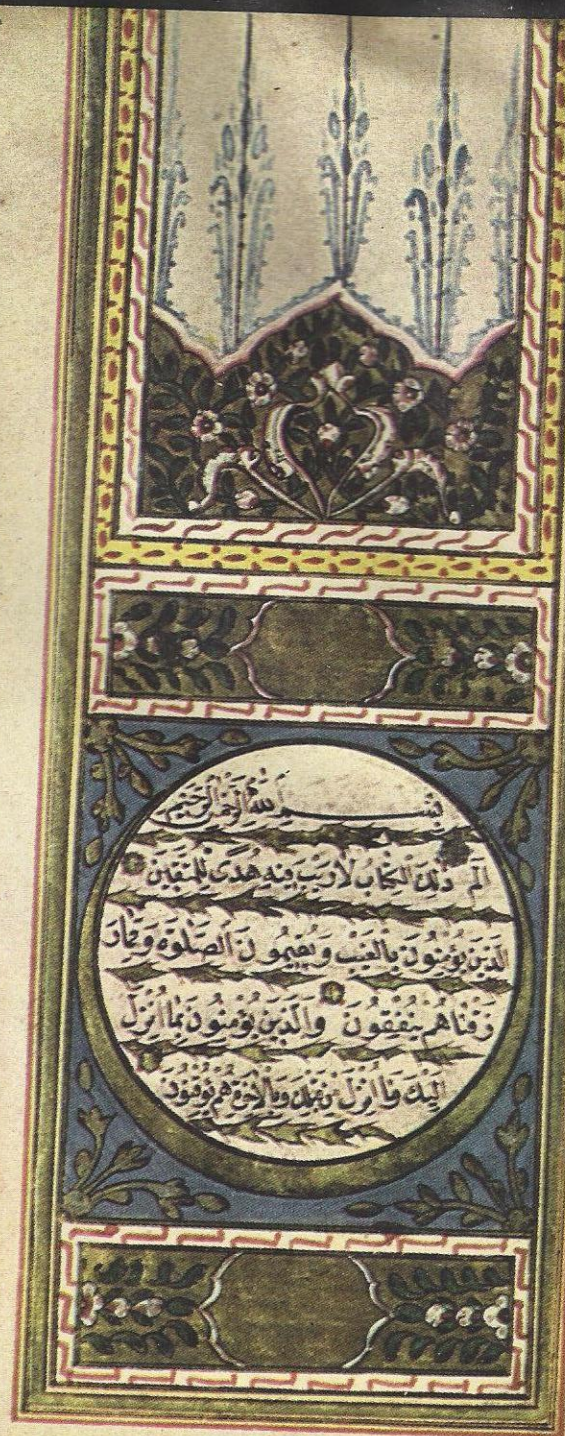 بسم الله الرحمن الرحيم
الم ذلك الكتاب لا ريب فيه هدى للمتقين
الذين يؤمنون بالغيب ويقيمون الصلوة ومما ر
زقناهم ينفقون والذين يؤمنون بما انزل
اليك وما انزل من قبلك وبالآخرة هم يوقنون